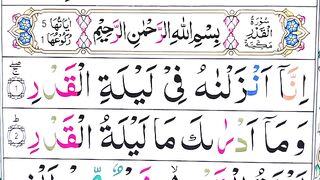 سُوْرَةُ الْقَدْرِ مَكِّيَّةٌ بِسْمِ اللهِ الرَّحْمٰنِ الرَّحِيْمِ اٰيَاتُهَا 5 رُكُوْعُهَا 1
اِنَّاۤ اَنْزَلْنٰهُ فِىْ لَيْلَةِ الْقَدْرِ 1
وَمَاۤ اَدْرٰىكَ مَا لَيْلَةُ الْقَدْرِ 2